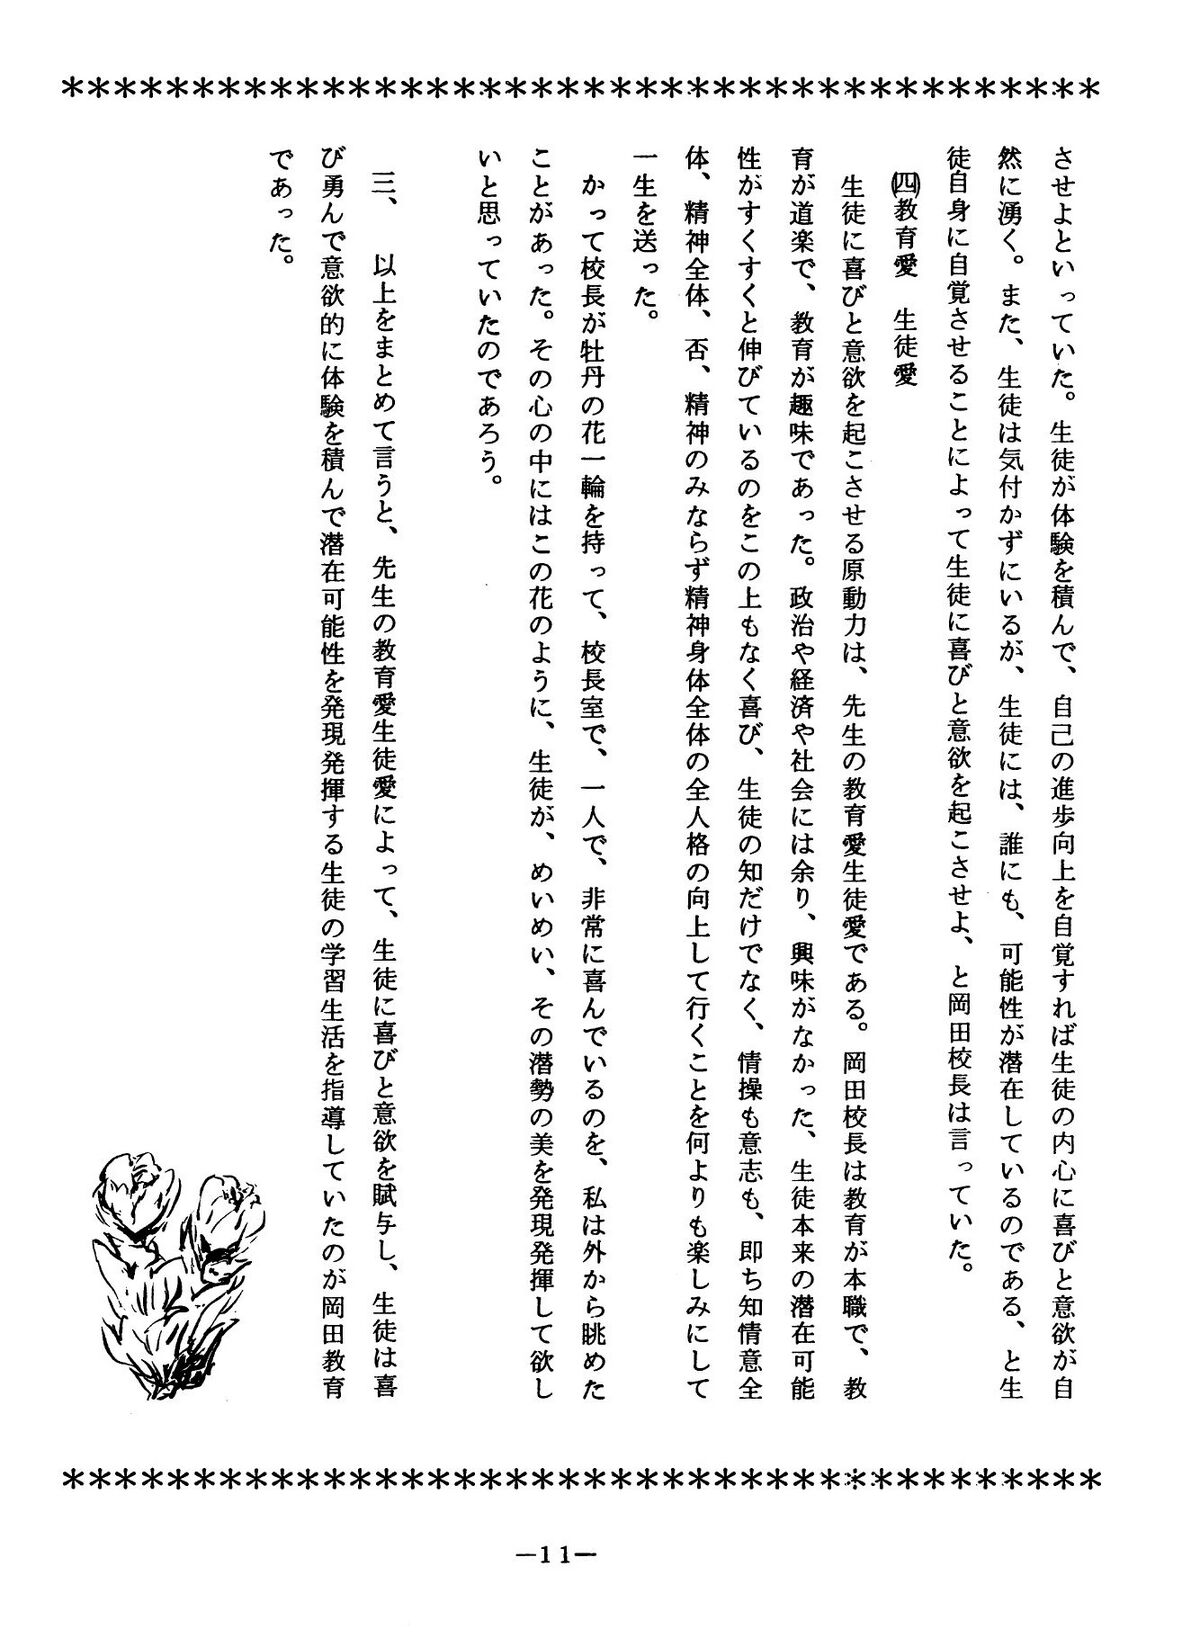 ＊＊＊＊＊＊＊＊＊＊＊＊＊＊＊＊＊＊＊＊＊＊＊＊＊＊＊＊＊＊＊＊＊＊＊＊＊＊＊＊
させよといっていた。生徒が体験を積んで、自己の進歩向上を自覚すれば生徒の内心に喜びと意欲が自
然に湧く。また、生徒は気付かずにいるが、生徒には、誰にも、可能性が潜在しているのである、と生
徒自身に自覚させることによって生徒に喜びと意欲を起こさせよ、と岡田校長は言っていた。
㈣教育愛　生徒愛
生徒に喜びと意欲を起こさせる原動力は、先生の教育愛生徒愛である。岡田校長は教育が本職で、教
育が道楽で、教育が趣味であった。政治や経済や社会には余り、興味がなかった、生徒本来の潜在可能
性がすくすくと伸びているのをこの上もなく喜び、生徒の知だけでなく、情操も意志も、即ち知情意全
体、精神全体、否、精神のみならず精神身体全体の全人格の向上して行くことを何よりも楽しみにして
一生を送った。
かって校長が牡丹の花一輪を持って、校長室で、一人で、非常に喜んでいるのを、私は外から眺めた
ことがあった。その心の中にはこの花のように、生徒が、めいめい、その潜勢の美を発現発揮して欲し
いと思っていたのであろう。
三、　以上をまとめて言うと、先生の教育愛生徒愛によって、生徒に喜びと意欲を賦与し、生徒は喜
び勇んで意欲的に体験を積んで潜在可能性を発現発揮する生徒の学習生活を指導していたのが岡田教育
であった。
＊＊＊＊＊＊＊＊＊＊＊＊＊＊＊＊＊＊＊＊＊＊＊＊＊＊＊＊＊＊＊＊＊＊＊＊＊＊＊＊
—11—